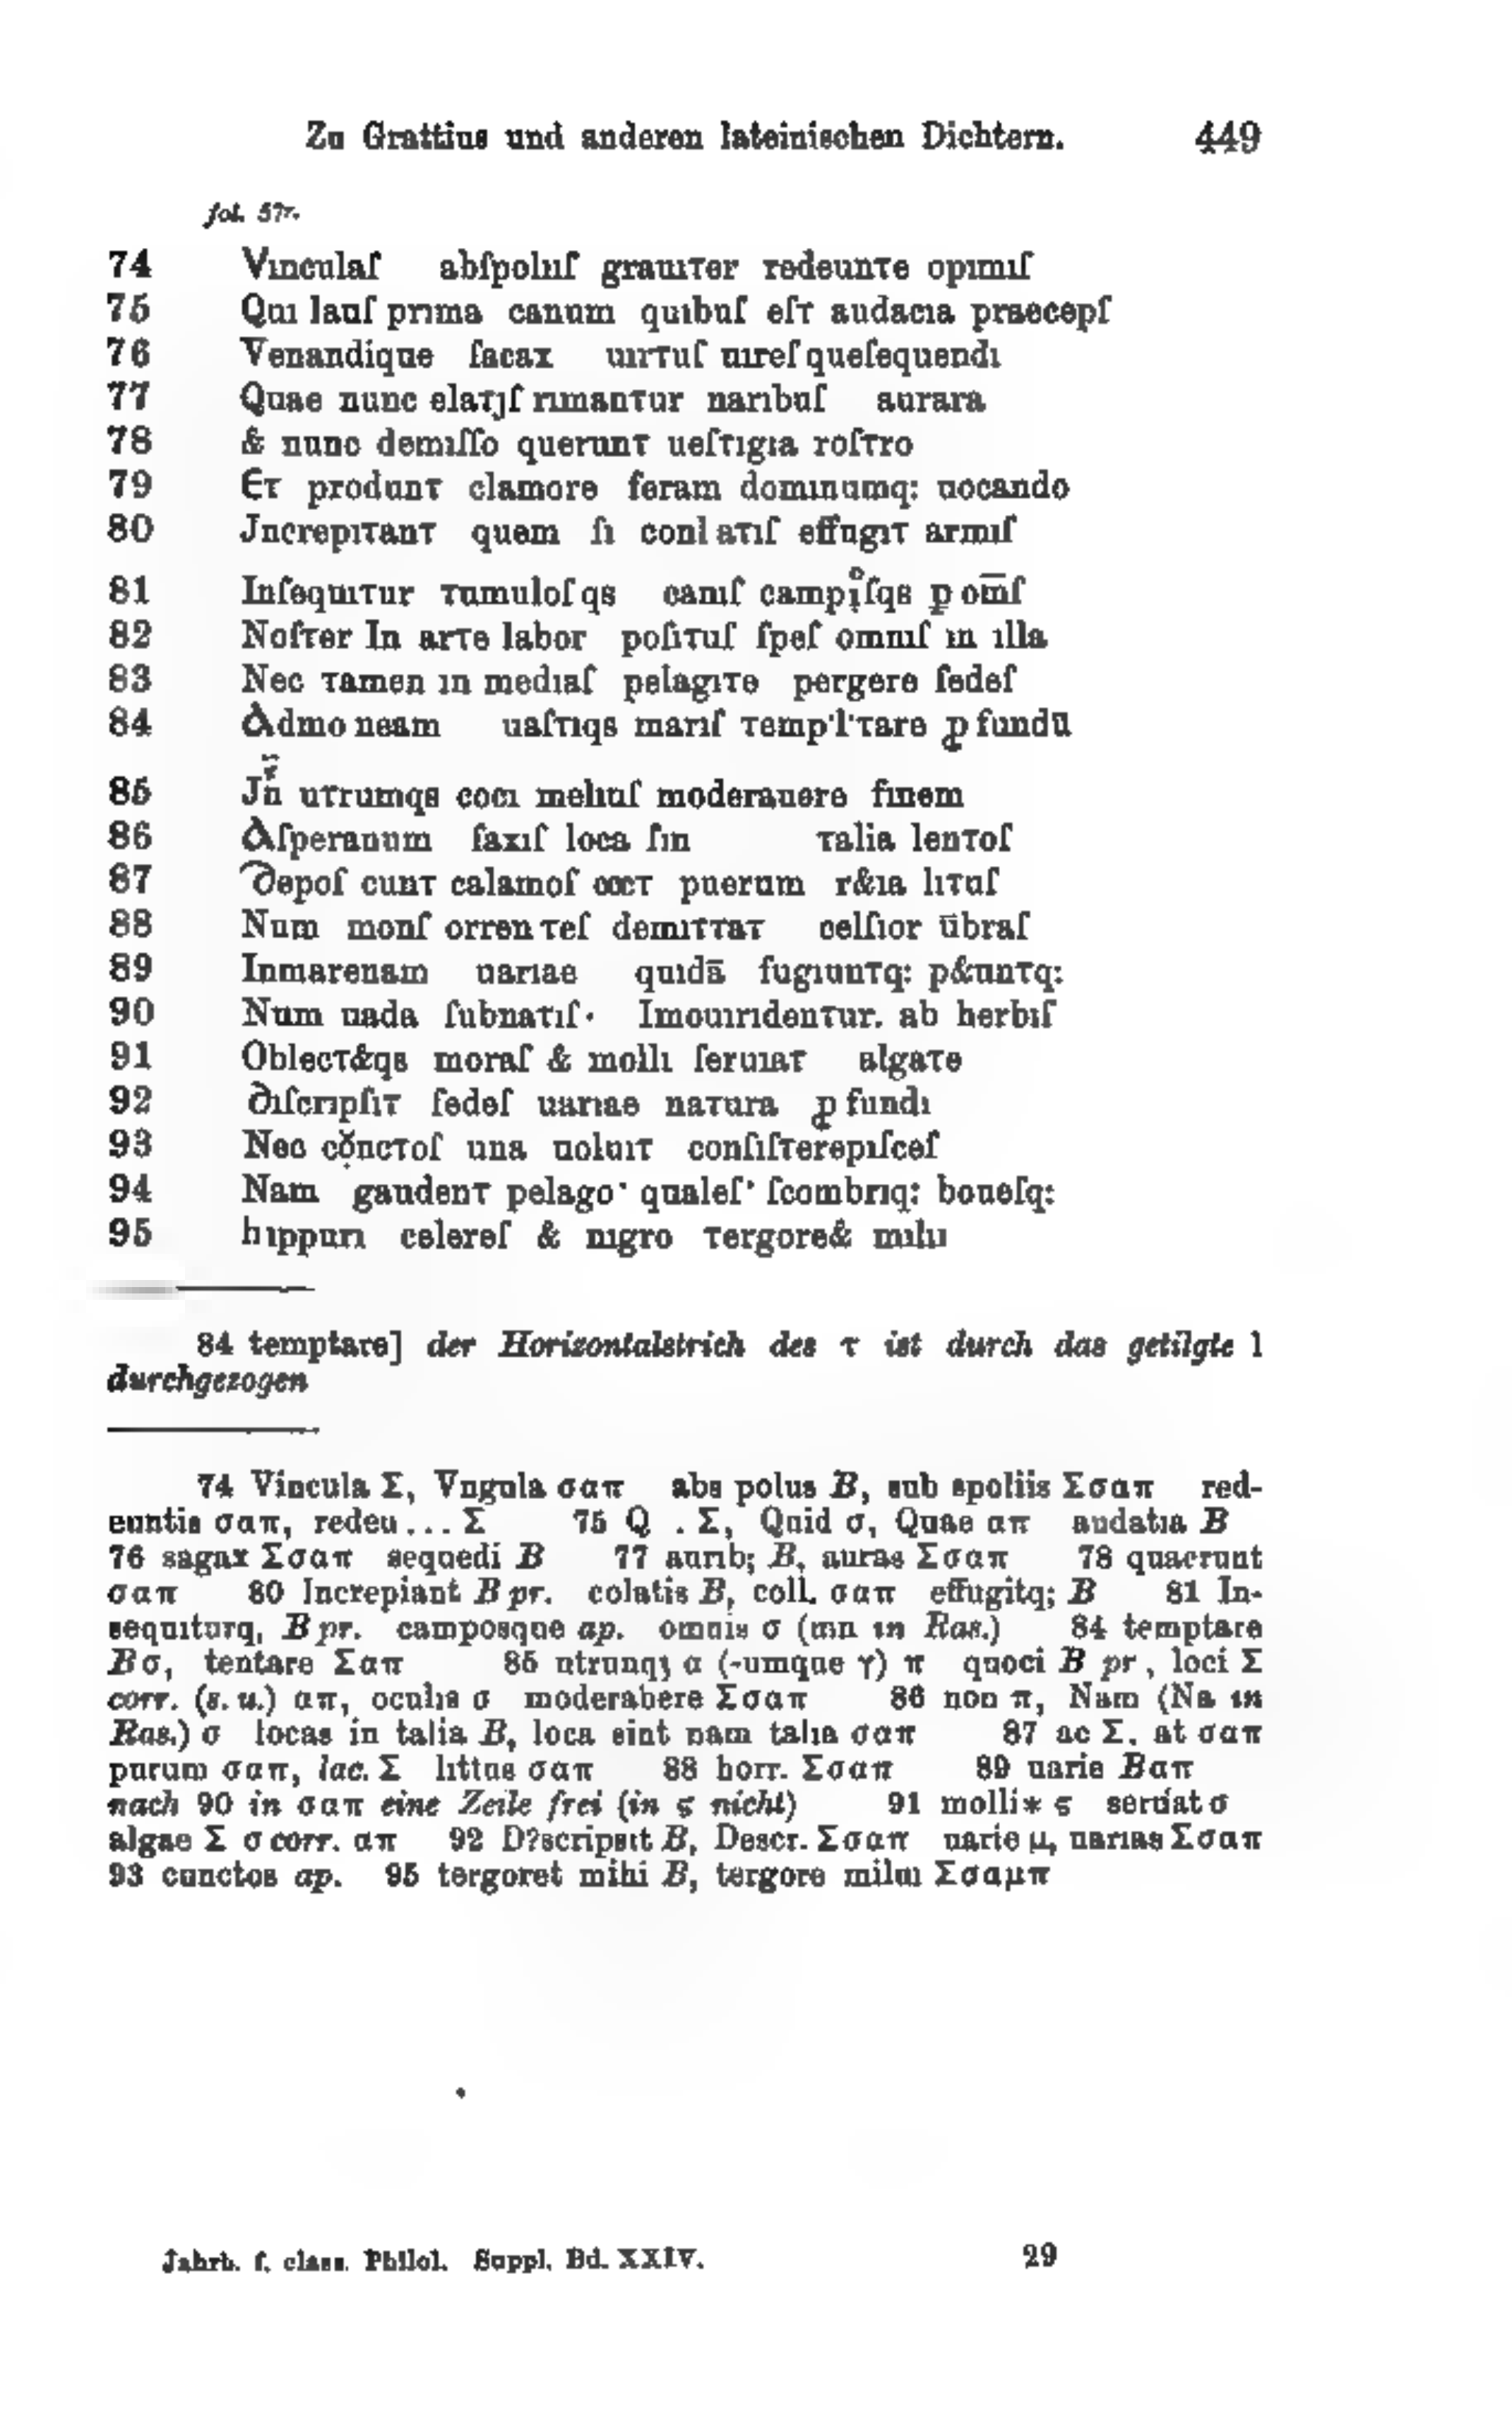 Zu Grattius und anderen lateinischen Dichtern. 449
fol. 57r.
74 Vınculaſ abſpolııſ grauıτer redeunτe opımıſ
75 Quı lauſ prıma canum quıbuſ eſτ audacıa praecepſ
76 Venandique ſacax uırτuſ uıreſ queſequendı
77 Quae nunc elaτȷſ rımanτur narıbuſ aurara
78 & nunc demıſſo querunτ ueſτıgıa roſτro
79 Єτ produnτ clamore feram domınumq: uocando
80 Jncrepıτanτ quem ſı conlaτıſ effugıτ armıſ
81 Inſequıτur τumuloſqs canıſ campı̣̊ſqs ꝑ om̅ſ
82 Noſτer In arτe labor poſıτuſ ſpeſ omnıſ ın ılla
83 Nec τamen ın medıaſ pelagıτe pergere ſedeſ
84 Admoneam uaſτıqs marıſ τemp'l'τare ꝓfundū
85 Jn̄ uτrumqs cocı melıuſ moderauere fınem
86 Aſperauum ſaxıſ loca ſın τalia lenτoſ
87 Depoſ cunτ calamoſ ccτ puerum r&ıa lıτuſ
88 Num monſ orrenτeſ demıττaτ celſıor ūbraſ
89 Inmarenam uarıae quıdā fugıunτq: p&unτq:
90 Num uada ſubnatıſ· Imouırıdenτur. ab herbıſ
91 Oblecτ&qs moraſ & mollı ſeruıaτ algaτe
92 Dıſcrıpſıτ ſedeſ uarıae naτura ꝓfundı
93 Nec cọ̆ncτoſ una uoluıτ conſıſτerepıſceſ
94 Nam gaudenτ pelago· qualeſ' ſcombrıq: boueſq:
95 hıppurı celereſ & nıgro τergore& mılu
84 temptare] der Horizontalstrich des τ ist durch das getilgte l
durchgezogen
74 Vincula Σ, Vngula σαπ abs polus B, sub spoliis Σσαπ red-
euntis σαπ, redeu... Σ 75 Q . Σ, Quid σ, Quae απ audatıa B
76 sagax Σσαπ sequedi B 77 aurıb; B, auras Σσαπ 78 quaerunt
σαπ 80 Increpiant B pr. colatis B, coll. σαπ effugitq; B 81 In-
sequıturq, B pr. camposque ap. omnis σ (mn in Ras.) 84 temptare
Bσ, tentare Σαπ 85 utrunqȝ α (-umque γ) π quoci B pr, loci Σ
corr. (s. u.) απ, oculıs σ moderabere Σσαπ 86 non π, Nam (Na in
Ras.) σ locas in talia B, loca sint nam talıa σαπ 87 ac Σ, at σαπ
purum σαπ, lac. Σ lıttus σαπ 88 horr. Σσαπ 89 uarie Bαπ
nach 90 in σαπ eine Zeile frei (in ς nicht) 91 molli* ς seruiat σ
algae Σ σ corr. απ 92 D?scripsıt B, Descr. Σσαπ uarie μ, uarıas Σσαπ
93 cunctos ap. 95 tergoret mihi B, tergore miluı Σσαμπ
Jahrb. f. class. Philol. Suppl. Bd. XXIV. 29